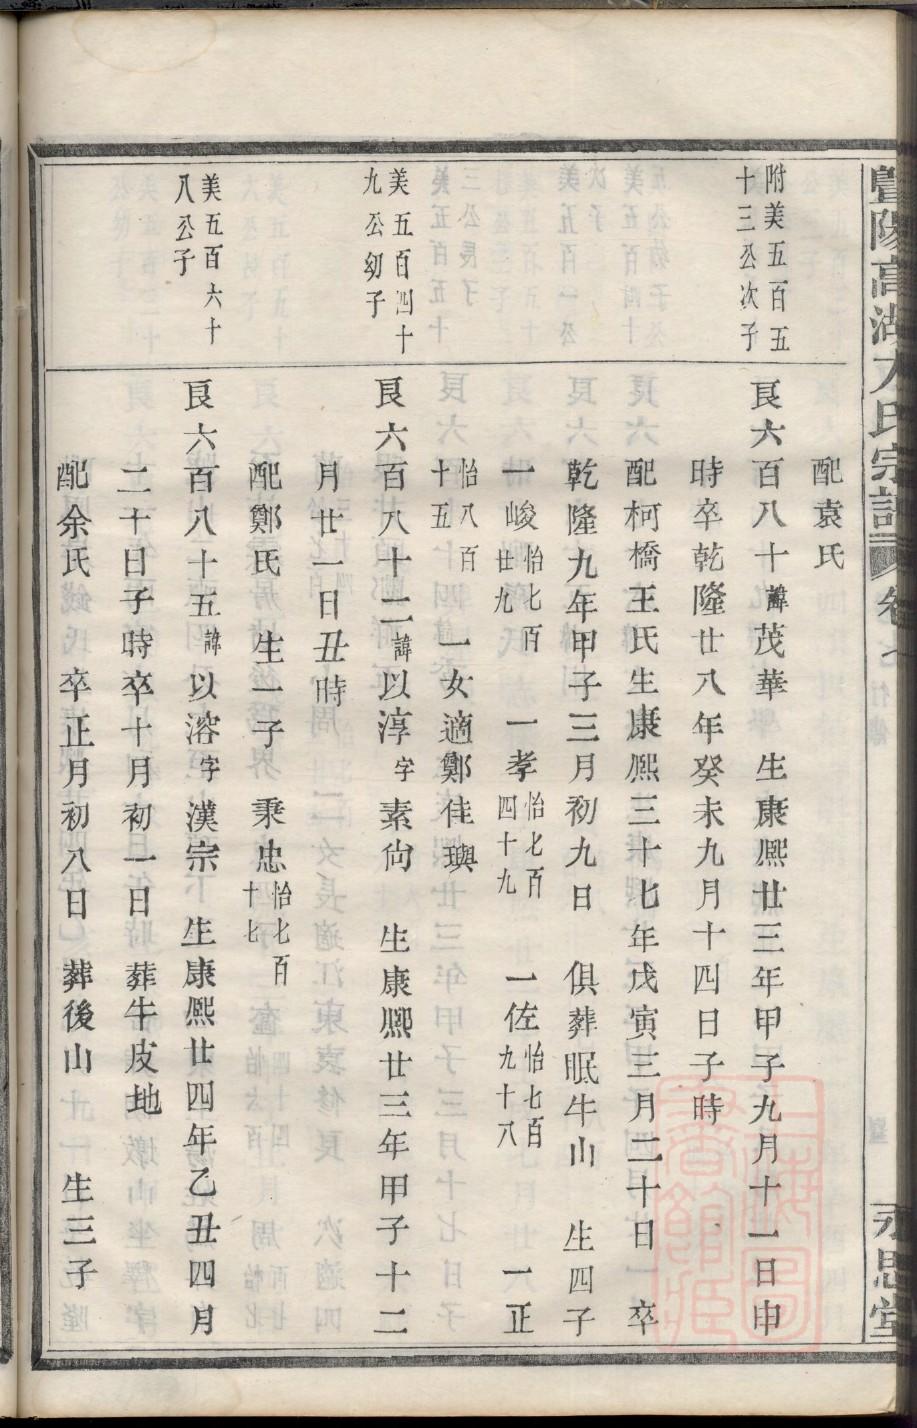 暨陽高湖 氏宗譜 卷七 永思堂
配袁氏
附美五百五
十三公次子
艮六百八十諱茂華 生康熈廿三年甲子九月十一日申
時卒乾隆廿八年癸未九月十四日子時
配柯橋王氏生康熈三十七年戊寅三月二十日 卒
乾隆九年甲子三月初九日 俱葬眠牛山 生四子
一峻怡七百廿九 一孝怡七百四十九 一佐怡七百九十八 一正
怡八百十五 一女適鄭佳璵
美五百四十
九公幼子
艮六百八十二諱以淳字素尙 生康熈廿三年甲子十二
月廿一日丑時
配鄭氏 生一子 秉忠怡七百十七
美五百六十
八公子
艮六百八十五諱以溶字漢宗 生康熈廿四年乙丑四月
二十日子時卒十月初一日 葬牛皮地
配余氏 卒正月初八日 葬後山 生三子